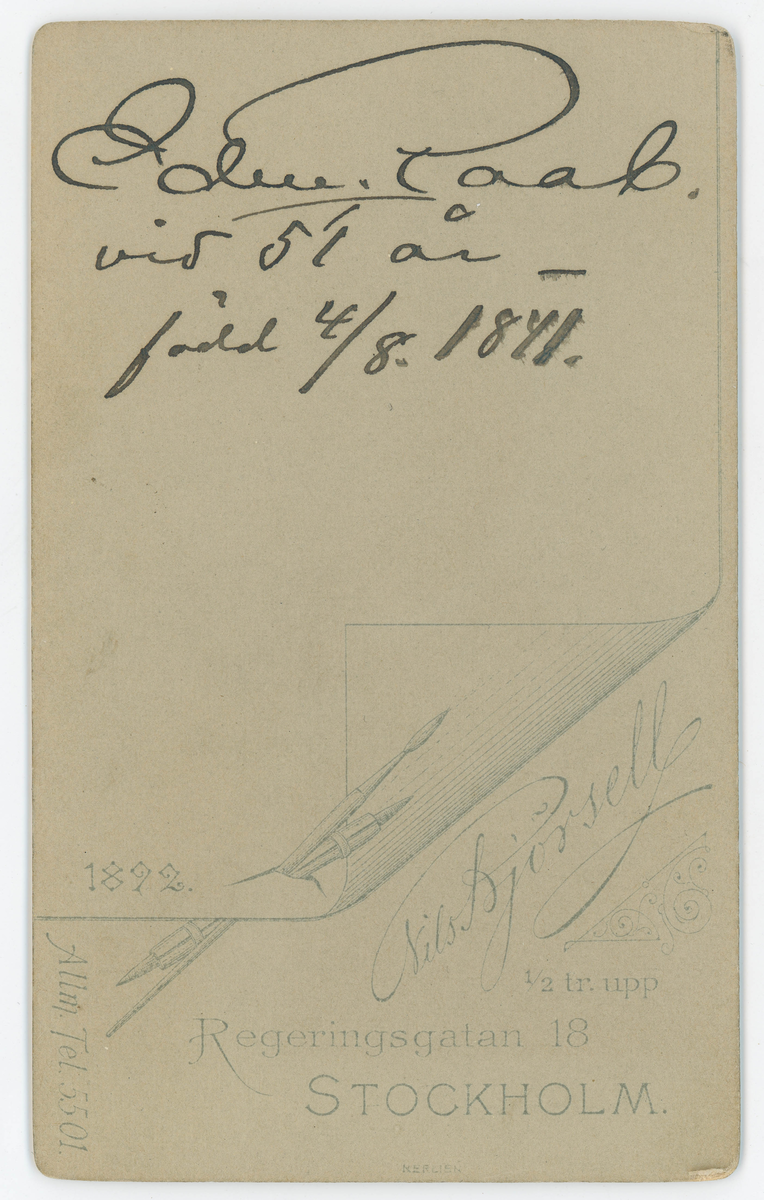 Edm. Raab.
vid 51 år –
född 4/8. 1841.
1892.
Nils Björsell
½ tr. upp
Regeringsgatan 18
STOCKHOLM.
Allm. Tel. 5501.
NERLIEN